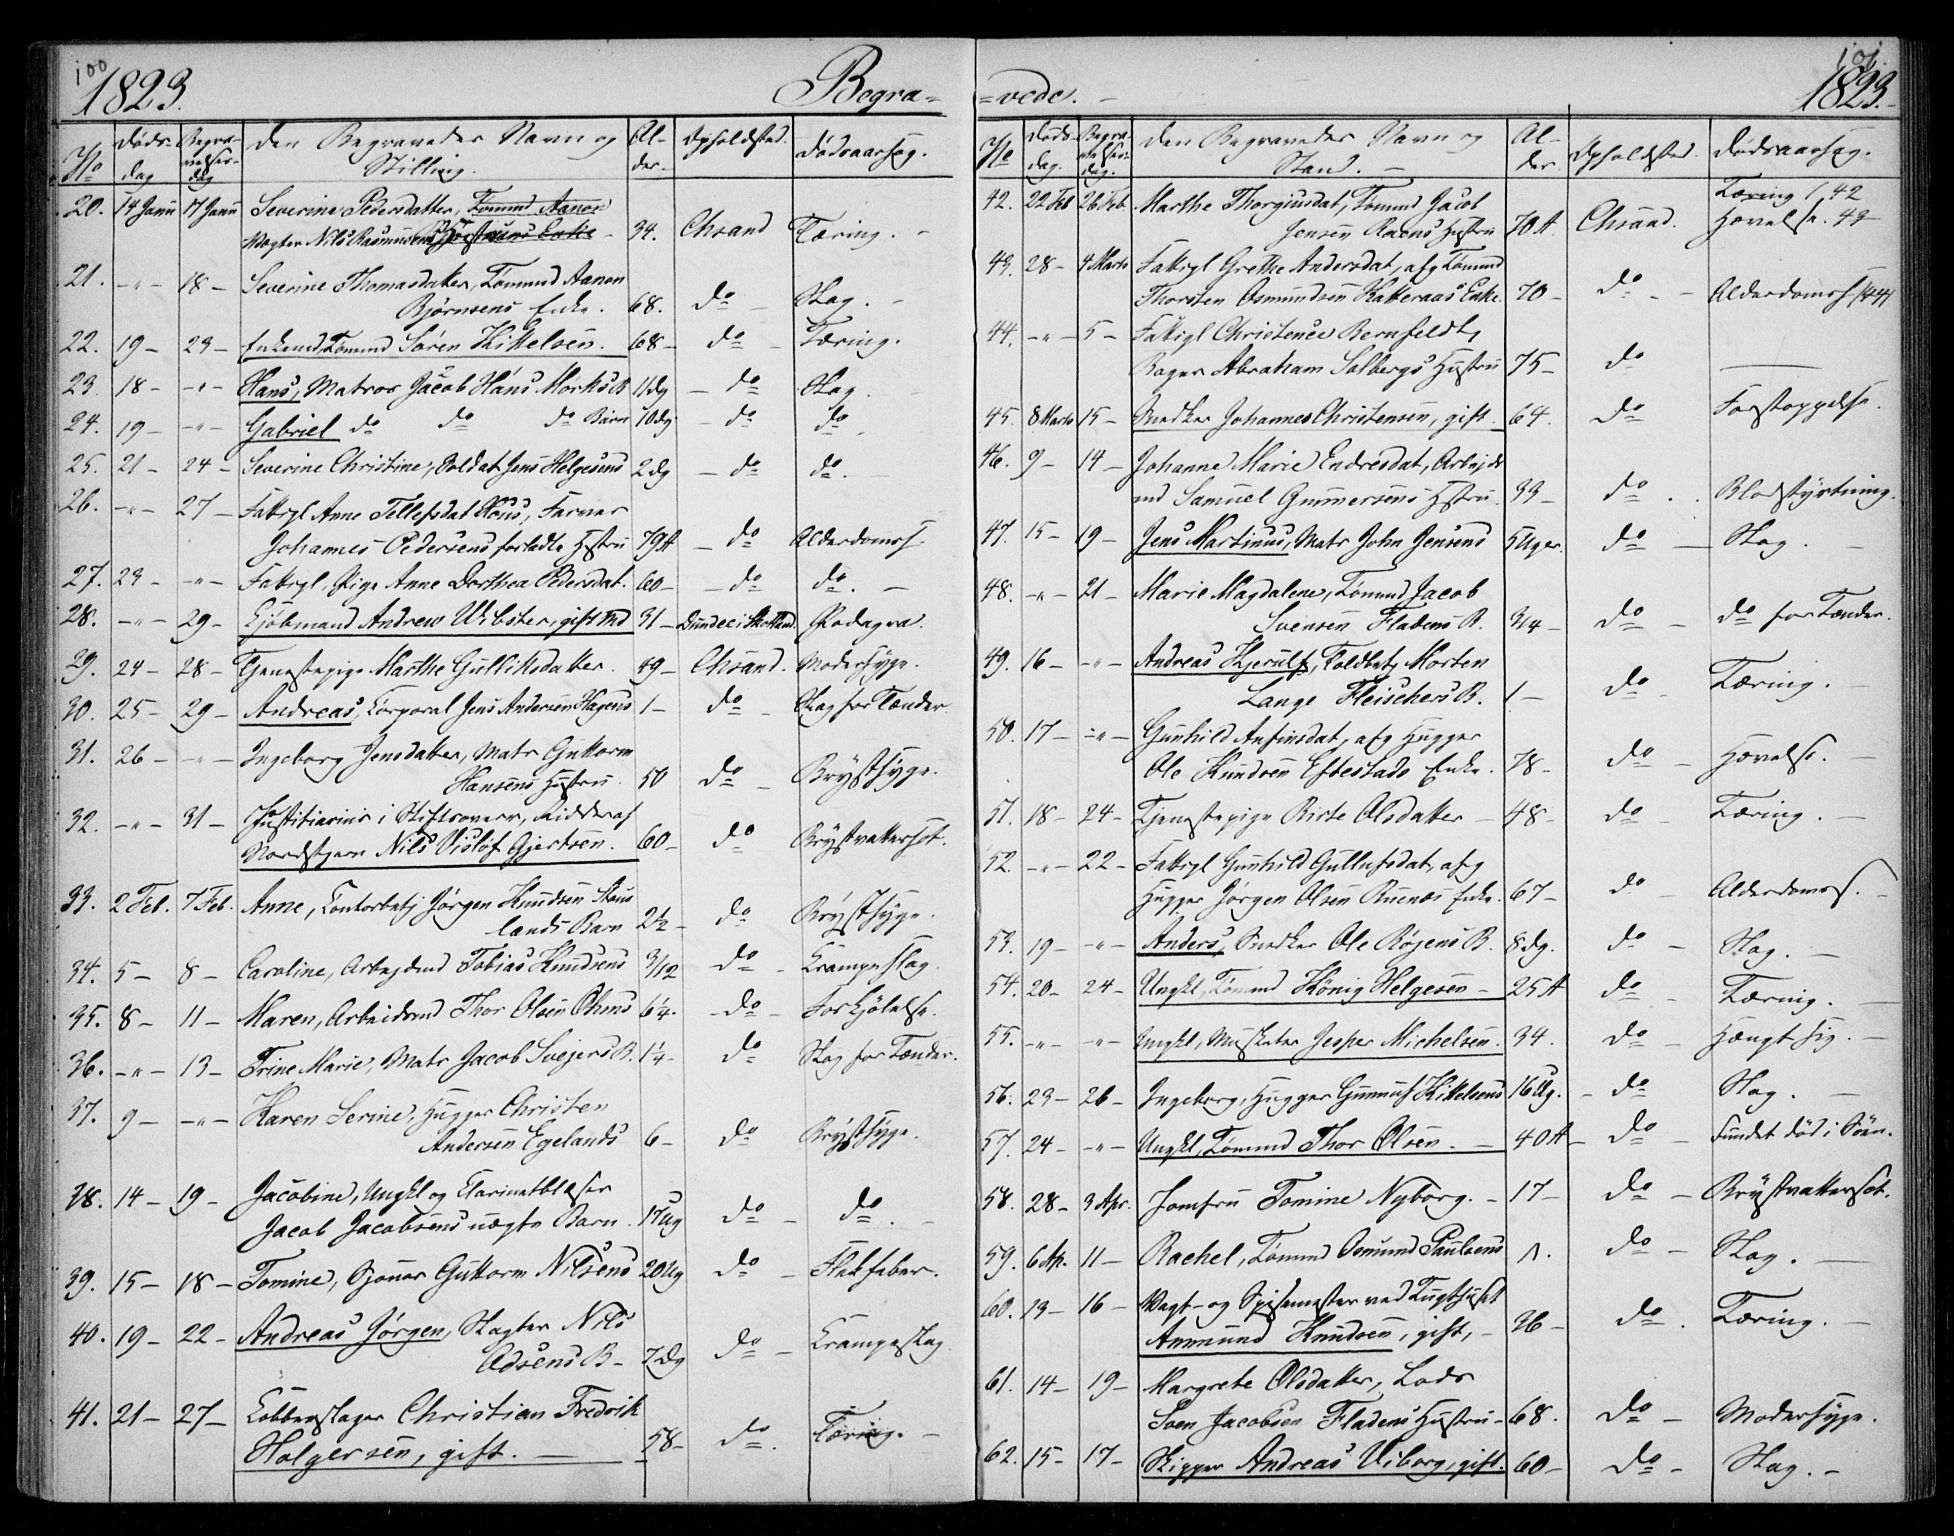 100
1823.
Begra=
No
Døds-
dag
Begra-
velses-
dag
Den Begravedes Navn og
Stilling.
Al-
der.
Opholdsted.
Dødsaarsag.
20. 14 Janu 17 Janu Severine Pedersdatter, Tømmd Aanon
Vægter Nils Rasmussens 34. Chsand Tæring. -
21. -"- 18- Severine Thomasdatter, Tømmd Aanon
Bjørnsens Enke. 68. do Slag. -
22. 19- 23- Enkemd, Tømmd Søren Kittelsen. 68- do - Tæring.
23. 18- -"- Hans, Matros Jacob Hans. Mørks B 11dg - do Slag
24. 19- -"- Gabriel do do do Barn 10dg - do do
25. 21- 24- Severine Christine, Soldat Jens Helgesens 2dg - do do.
26. -"- 27- Fattigl Anne Tellefsdat Høus, Farver
Johannes Pedersens forladte Hstru 79A - do Alderdomss.
27. 23- -"- Fattigl, Pige Anne Dorthea Pedersdat. 60- - do do. -
28. -"- 29- Kjøbmand Andrew Webster, gift Md 31- Dundee i Skotland. Podagra.
29. 24- 28- Tjenestepige Marthe Gulliksdatter. 49- Chsand. Modersyge.
30. 25- 29- Andreas, Corporal Jens Andersen Hagens 1- do - Slag for Tænder
31. 26- -"- Ingeborg Jensdatter, Matr Guttorm
Hansens Hustru. 50 do - Brystsyge.
32. -"- 31- Justitiarius i Stiftsoverr, Ridder af
Nordstjern Nils Visløf Gjertsen. 60- do Brystvattersot.
33. 2 Feb. 7 Feb. Anne, Contorbetj Jørgen Knudsen Staus
lands Barn 2½- do Brystsyge.
34. 5- 8- Caroline, Arbejdsmd Tobias Knudsens 3/12 do - Krampeslag.
35. 8- 11- Maren, Arbeidsmd Thor Olsen Ohms 6¼. -do- Forkjølelse.
36. -"- 13- Trine Marie, Matr Jacob Svejers B. 1¼- do Slag for Tænder.
37. 9- -"- Karen Serine, Hugger Christen
Andersen Egelands 6- do Brystsyge.
38. 14- 19- Jacobine, Ungkl og Clarinetblæser
Jacob Jacobsens uægte Barn. 17Ug do - do. -
39. 15- 18- Tomine, Sjouer Guttorm Nilsens 20Ug do - Flekfeber.
40. 19- 22- Andreas Jørgen, Slagter Nils
Adsens B- 7dg do - Krampeslag
41. 21- 27- Kobberslager Christian Fredrik
Holgersen, gift. - 58- do. Tæring. -
101.
1823.
=vede. -
No
Døds-
dag.
Begra-
velses-
dag.
Den Begravedes Navn og
Stand. -
Al-
der
Opholdsted.
Dødsaarsag.
42. 22 Feb 26 Feb Marthe Thorgiusdat, Tømmd Jacob Tæring / 42
Jensen Raens Hustru 70A Chsand. Hævelse. 43
43. 28- 4 Marts Fattigl Grethe Andersdat, afg Tømmd
Thorsten Osmundsen Katteraas Enke. 70- do - - Alderdomss /44/
44. -"- 5- Fattigl Christence Bernfeldt,
Bager Abraham Solbergs Hustru 75- do
45. 8 Marts 15- Snedker Johannes Christensen, gift. 64. do Forstoppelse.
46. 9- 14- Johanne Marie Endresdat, Arbejds
md Samuel Gunmersens Hstru. 33- do . . Blodstyrtning.
47. 15- 19- Jens Martinus, Matr John Jensens 5Uger. do - Slag. -
48. -"- 21- Marie Magdalene, Tømmd Jacob
Svensen Fladens B. 3/4- do - do for Tænder.
49. 16- -"- Andreas Hjerulf, Toldbetj Morten
Lange Fleischers B. 1- do - Tæring. -
50. 17- -"- Gunhild Anfinsdat, afg Hugger
Ole Knudsen Eftestads Enke. 78- do - Hævelse. -
51. 18- 24- Tjenestepige Birte Olsdatter - 48- do - Tæring. -
52. -"- 22- Fattigl Gunhild Gullufsdat, afg
Hugger Jørgen Olsen Ruenæs Enke. 67- do - Alderdomss. -
53. 19- -"- Anders, Snedker Ole Røjens B. 8dg. do - Slag. -
54. 20- 24- Ungkl, Tømmd König Helgesen- 25A do - Tæring. -
55. -"- -"- Ungkl, Musketer Jesper Michelsen. 34. do - Hængt sig. -
56. 23- 26- Ingeborg, Hugger Gunnuf Kittelsens 16Ug. - do Slag. -
57. 24- -"- Ungkl, Tømmd Thor Olsen. - 40A- do - Fundet død i Søen.
58. 28- 3 Apr. Jomfru Tomine Nyborg. - 17- do - Brystvattersot.
59. 6 Ap. 11- Rachel, Tømmd Osmund Paulsens 1. do - Slag. -
60. 13- 16- Vagt- og Spisemester ved Tugthuset
Anmund Knudsen, gift, - 36- do. Tæring. -
61. 14- 19- Margrete Olsdatter, Lods
Sven Jacobsen Fladens Hustru- 68. do - Modersyge.
62. 15- 17- Skipper Andreas Viborg, gift. 60- do - Slag. -